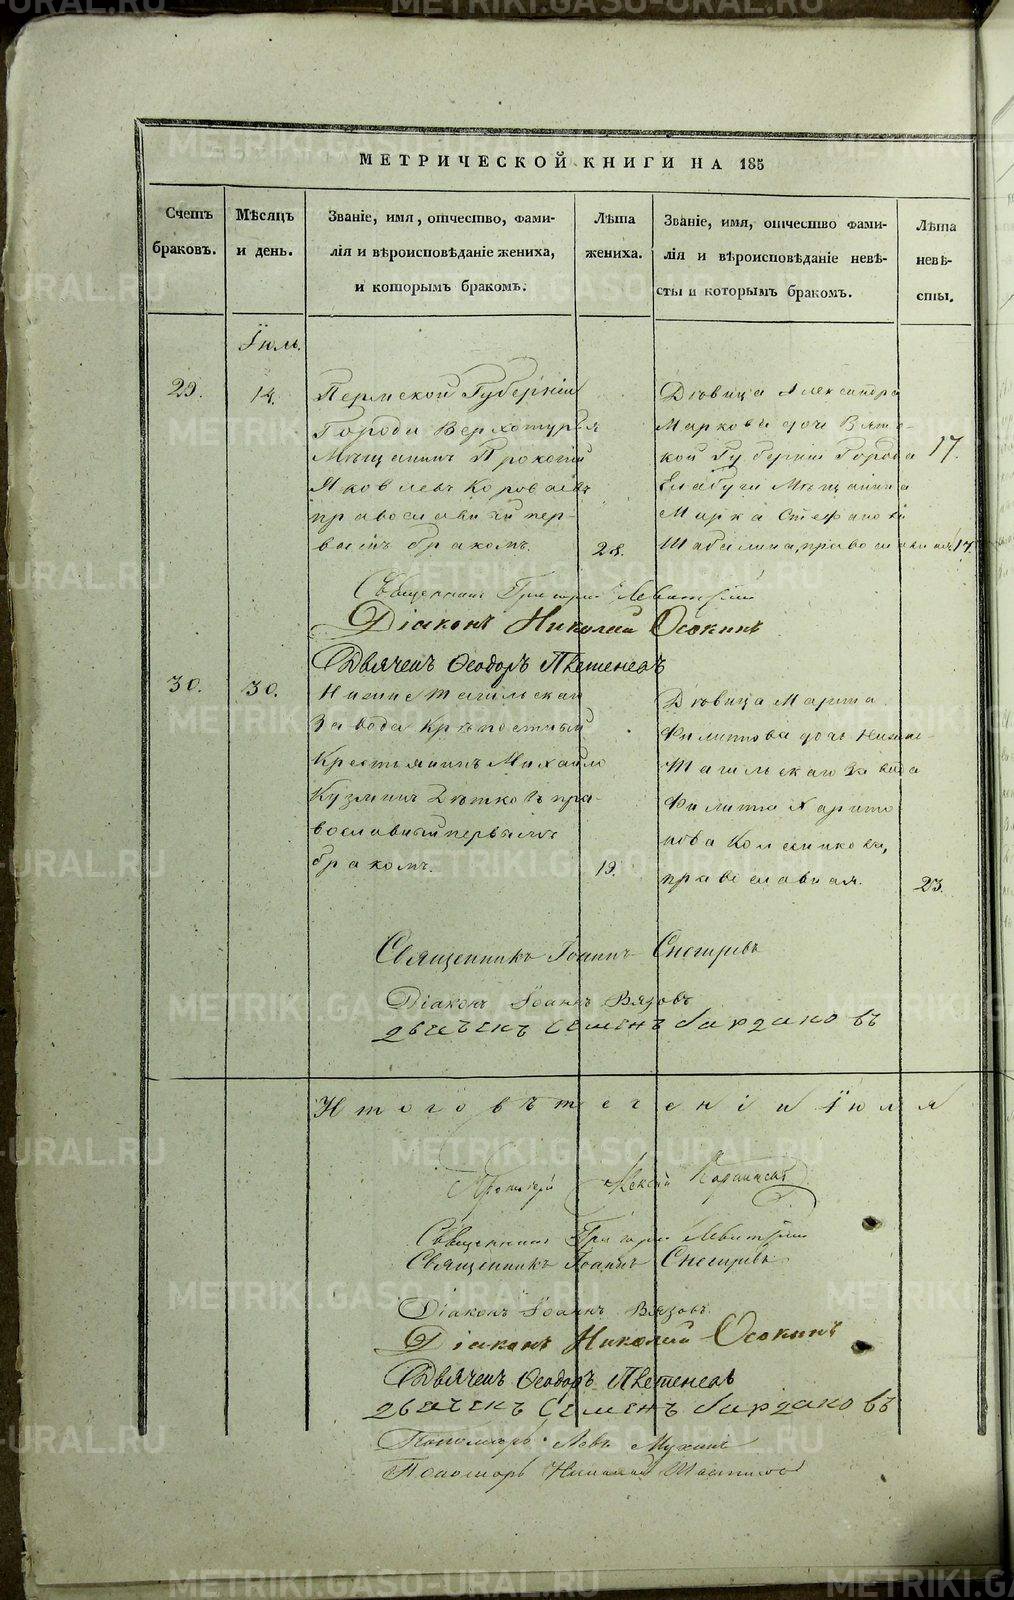 МЕТРИЧЕСКОЙ КНИГИ НА 185
Счетъ браковъ.
Мѣсяцъ и день.
Званіе, имя, отчество, фами-
лія и вѣроисповѣданіе жениха,
и которымъ бракомъ.
Лѣта
жениха.
Званіе, имя, отчество фами-
лія и вѣроисповѣданіе невѣ-
сты и которымъ бракомъ.
Лѣта
невѣ-
сты.
Іюль.
29.
14.
Пермской Губерніи
Города Верхотурья
Мѣщанинъ Прокопій
Яковлевъ Короваевъ
православный пер-
вымъ бракомъ.
28.
Дѣвица Александра
Маркова дочь Вятс-
кой Губерніи Города
Елабуги Мѣщанина
Марка Стефанова
Шабалина, православная
17.
17.
Священникъ Григорій Левитскій
Діаконъ Николай Осокинъ
Дьячекъ Ѳеодоръ
30.
30.
Нижне Тагильскаго
Завода Крѣпостный
Крестьянинъ Михайло
Кузминъ Дѣтковъ пра-
вославный первымъ
бракомъ.
19.
Дѣвица Марѳа
Филипова дочь Нижне-
Тагильскаго Завода
Филипа Харито
нова Колесникова,
православная.
23.
Священникъ Іоаннъ Снегиревъ
Діаконъ Іоаннъ Вязовъ
Двячекъ Семенъ Бардаковъ
Итого въ теченіи Іюля
Протоіерей Алексій
Священникъ Григорій Левитскій
Священникъ Іоаннъ Снегиревъ
Діаконъ Іоаннъ Вязовъ
Діаконъ Николай Осокинъ
Дьячекъ Ѳеодоръ
Двячекъ Семенъ Бардаковъ
Пономарь Левъ Мухинъ
Пономарь Николай
METRIKI.GASO-URAL.RU